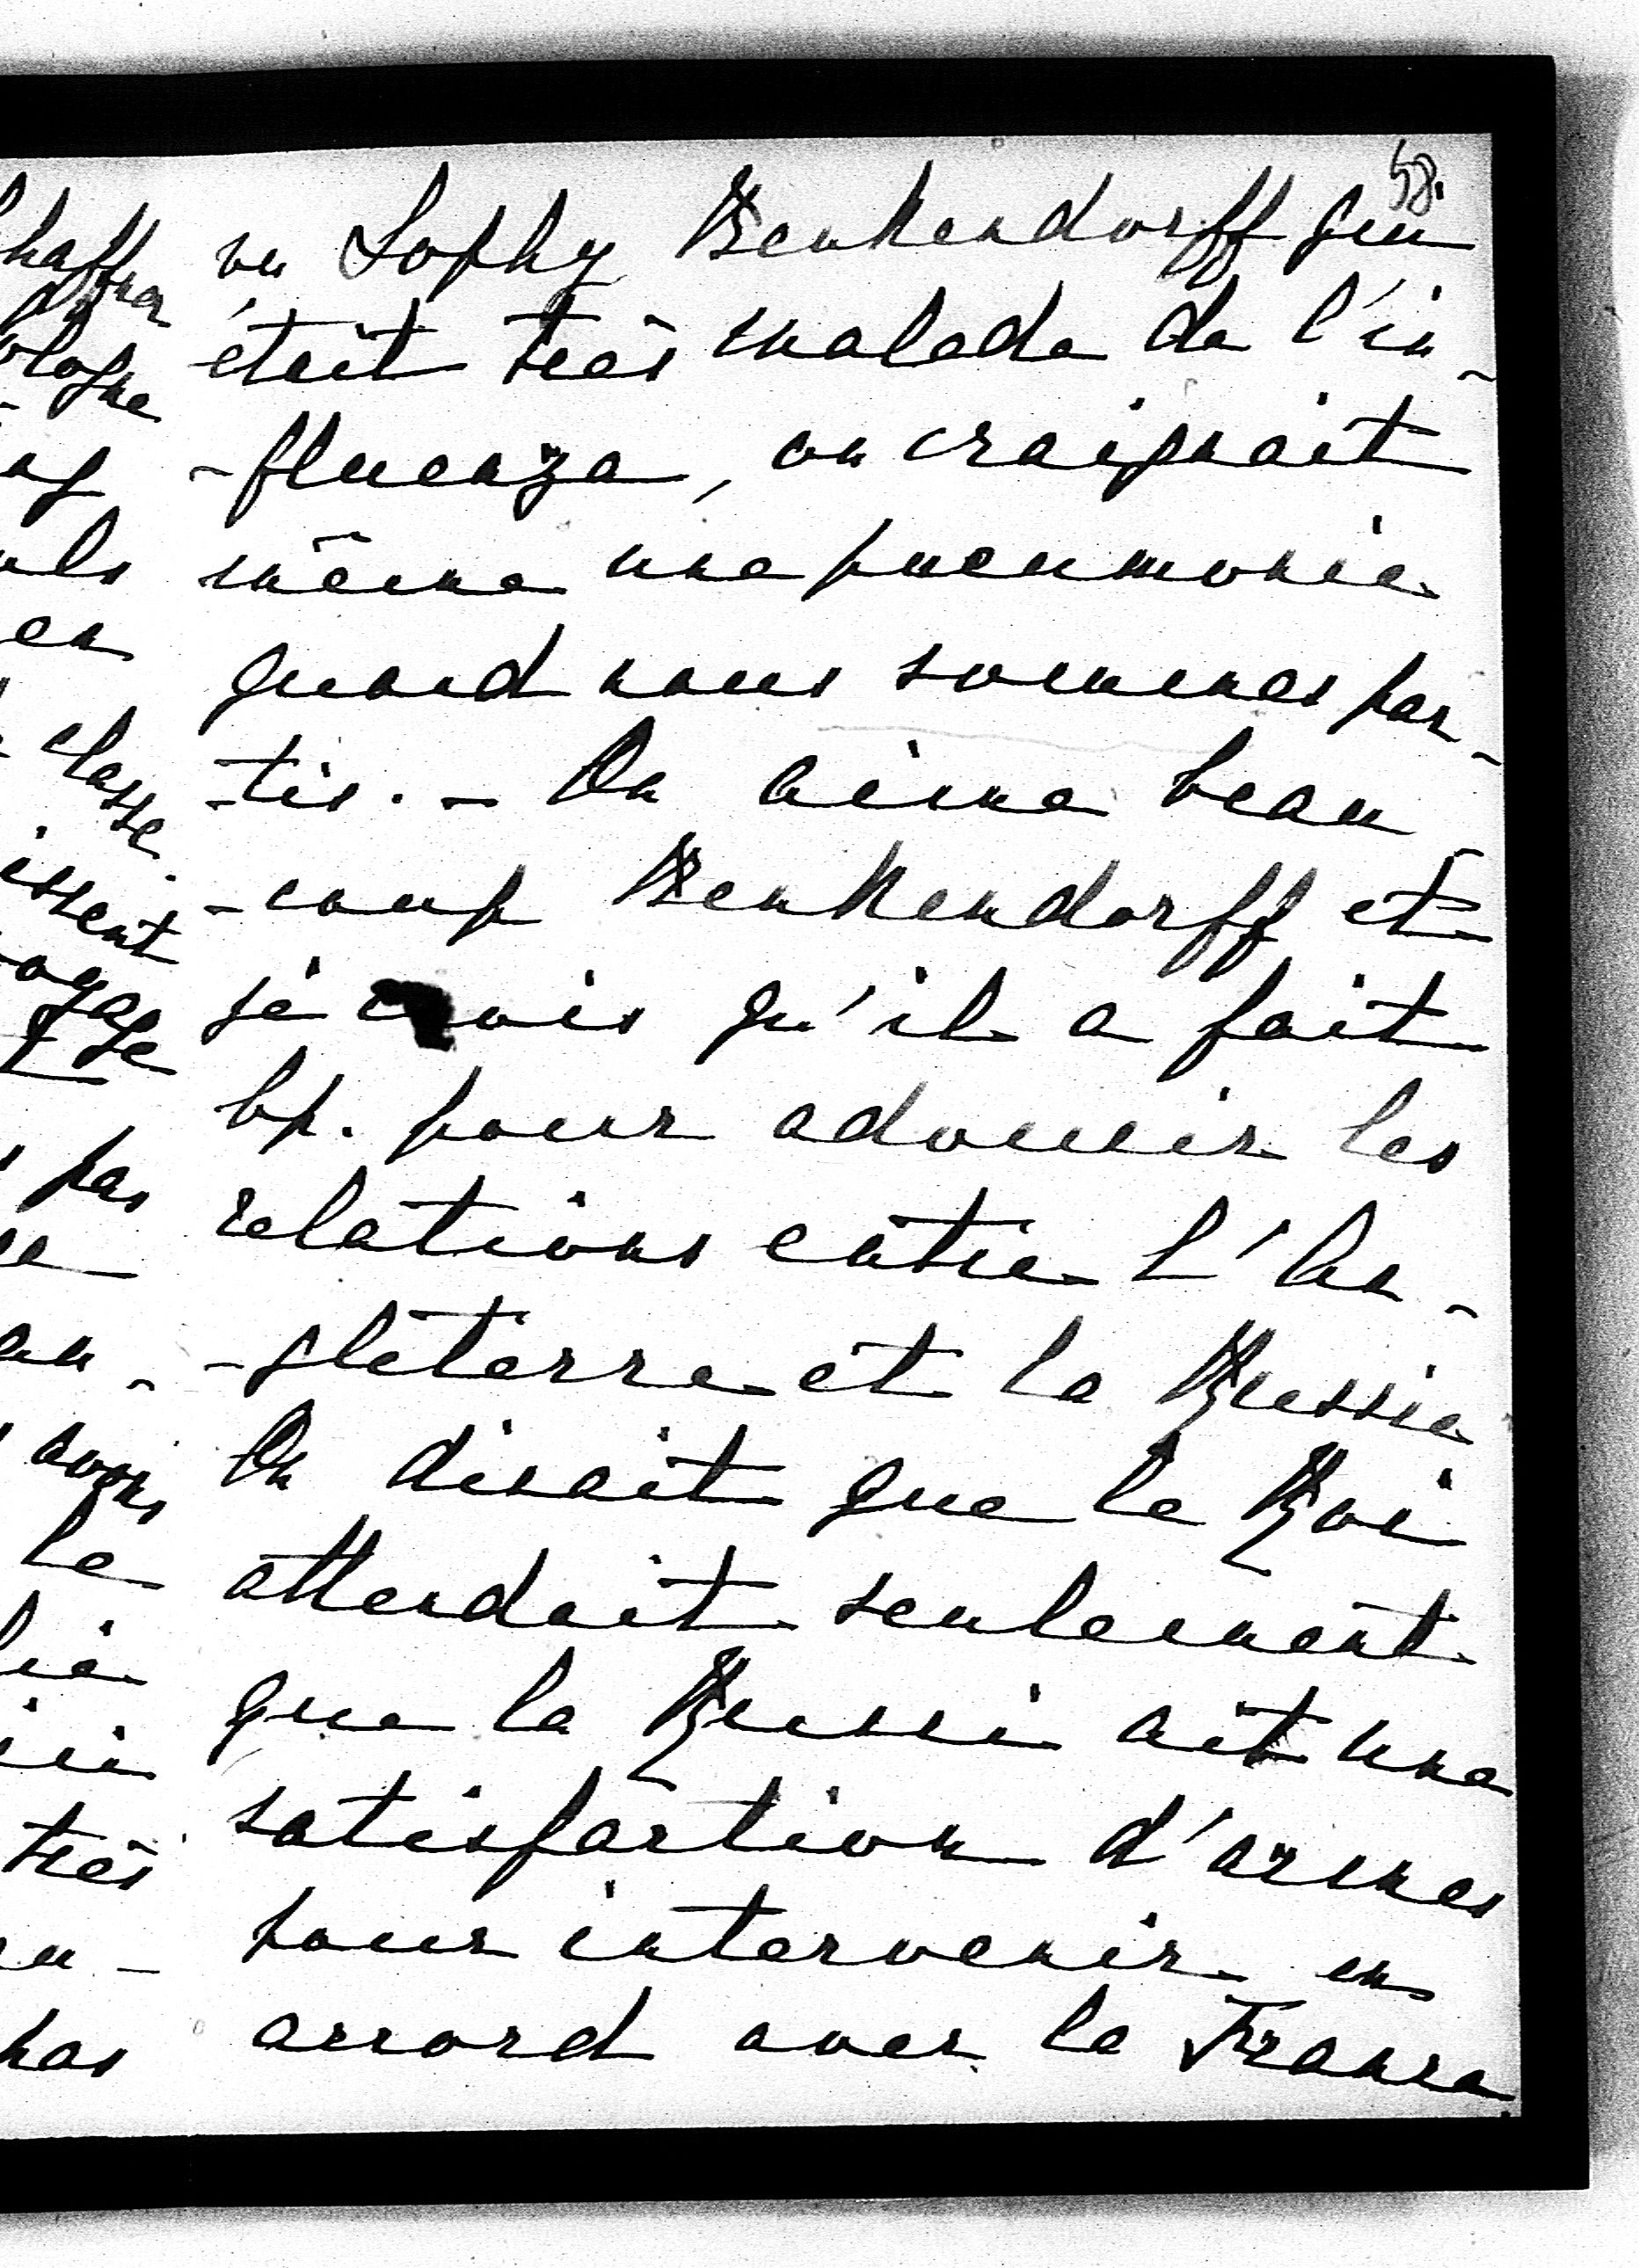 58.
vu Sophy Benkendorff qui
était très malade de l'in-
-fluenza, on craignait
même une pneumonie
quand nous sommes par-
-tis. - On aime beau-
-coup Benkendorff et
je crois qu'il a fait
bp. pour adoucir les
relations entre l'An-
-gleterre et la Russie
On disait que le Roi
attendait seulement
que la Russi ait une
satisfaction d'armes
pour intervenir en
accord avec la France.
haffner
ologne
ng
uls
en
classe.
issent
oyage
pas
se
an-
avons
le
lié
ici
très
en-
pas